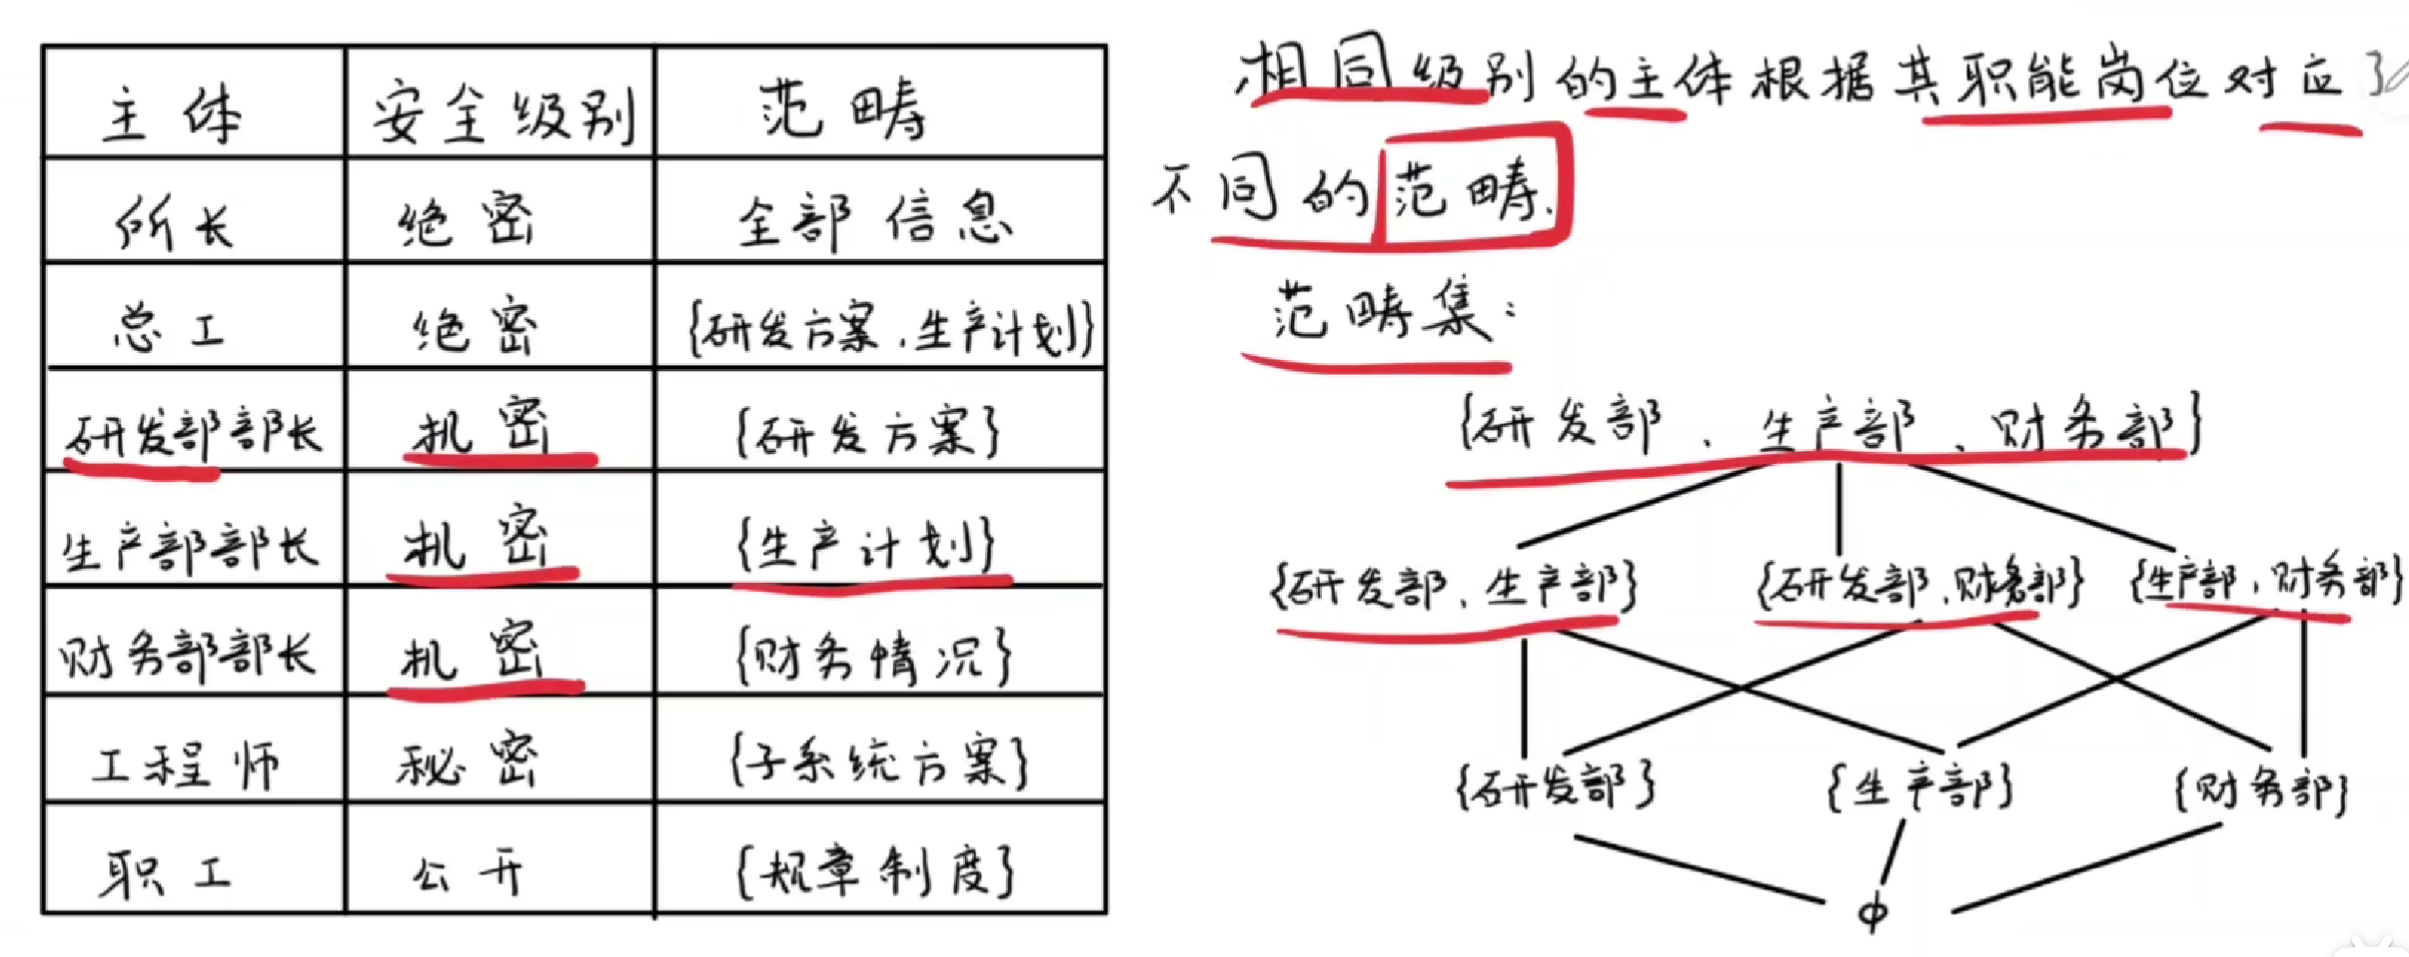 主体 安全级别 范畴
所长 绝密 全部信息
总工 绝密 {研发方案、生产计划}
研发部部长 机密 {研发方案}
生产部部长 机密 {生产计划}
财务部部长 机密 {财务情况}
工程师 秘密 {子系统方案}
职工 公开 {规章制度}
相同级别的主体根据其职能岗位对应了
不同的范畴.
范畴集：
{研发部、生产部、财务部}
{研发部、生产部} {研发部、财务部} {生产部、财务部}
{研发部} {生产部} {财务部}
φ